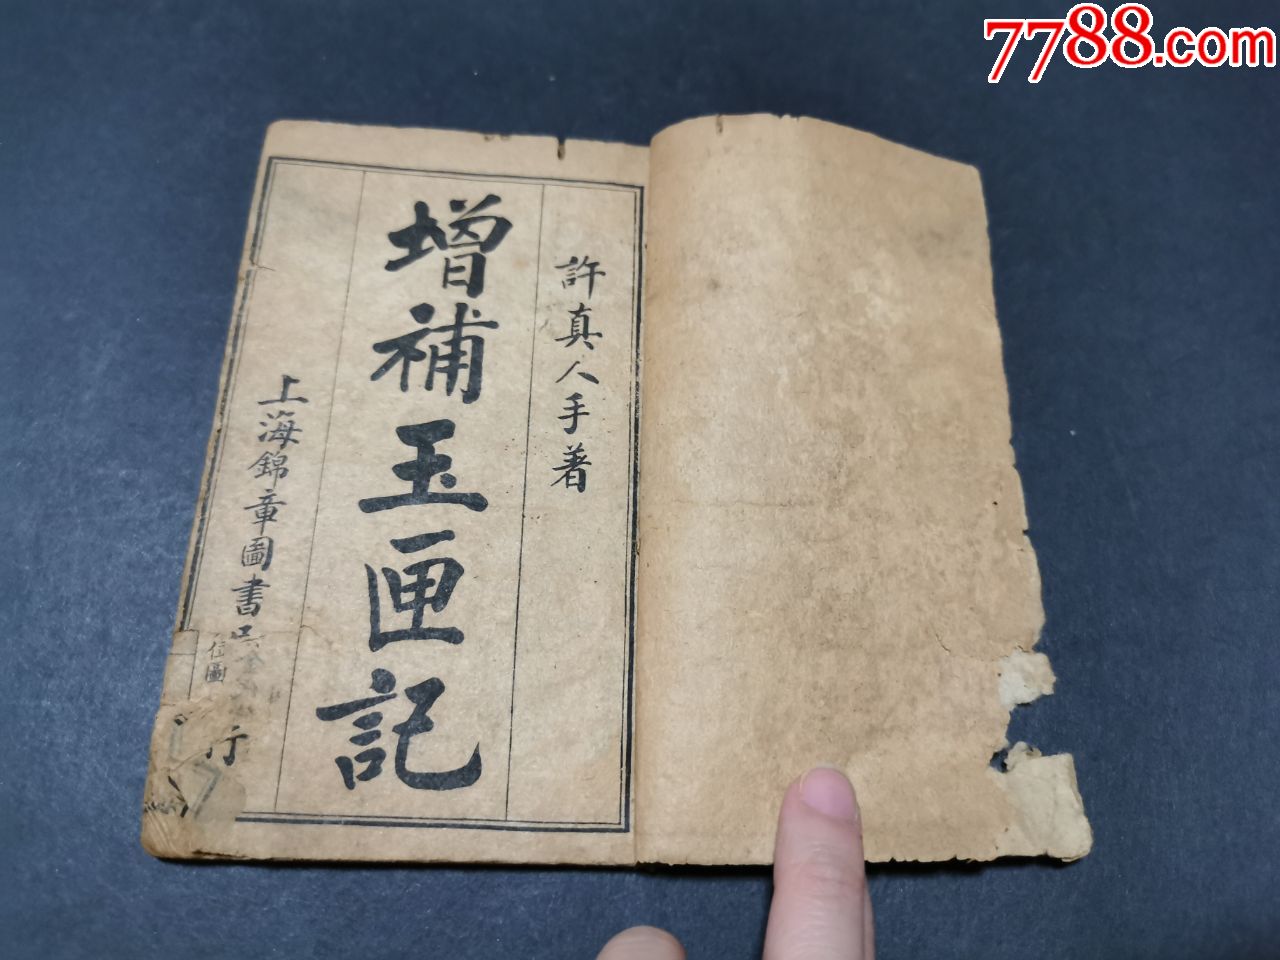 7788.com
許真人手著
增補玉匣記
上海錦章圖書
行